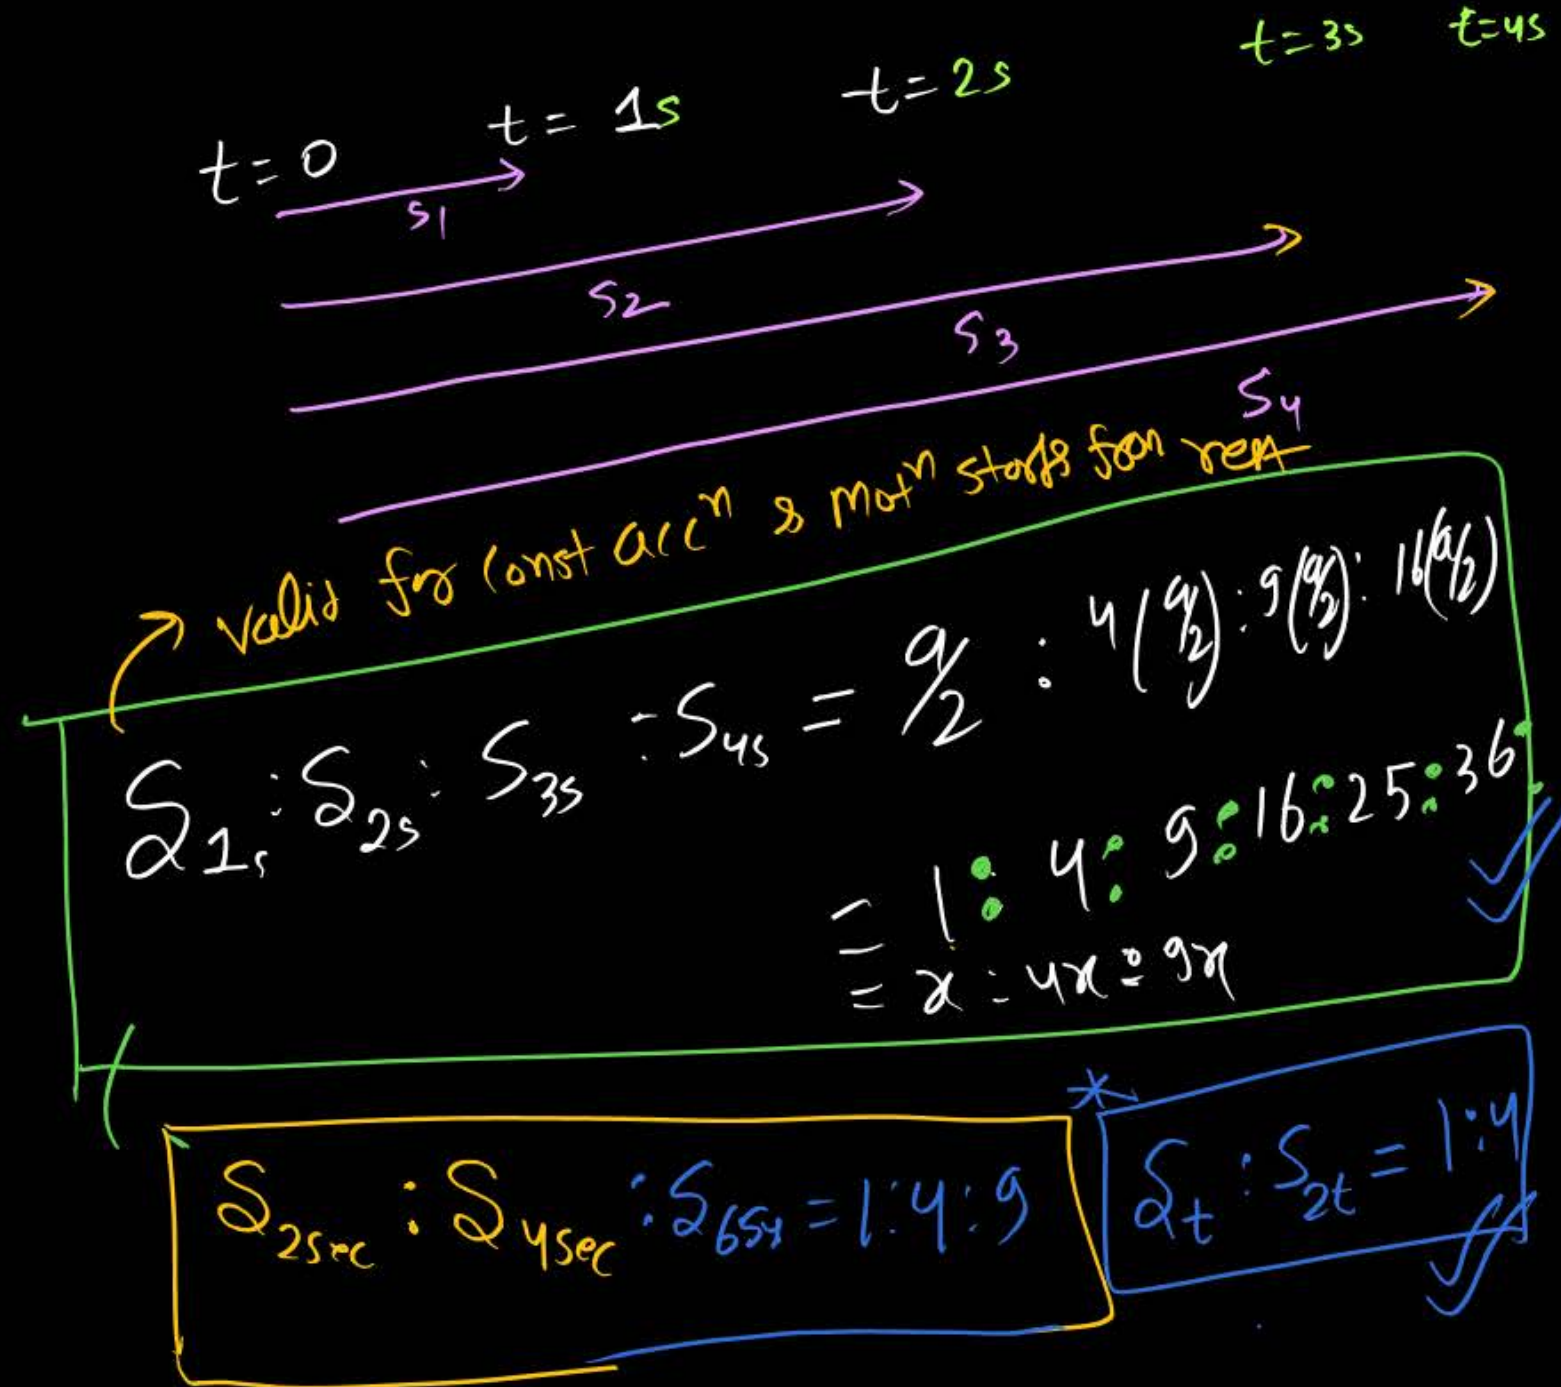 t=0 t= 1s t=2s t=3s t=4s
S1
S2
S3
S4
valid for const accⁿ & motⁿ starts from rest
S1s : S2s : S3s : S4s = a/2 : 4(a/2) : 9(a/2) : 16(a/2)
= 1 : 4 : 9 : 16 : 25 : 36
= x : 4x : 9x
S2sec : S4sec : S6sec = 1:4:9
* St : S2t = 1:4